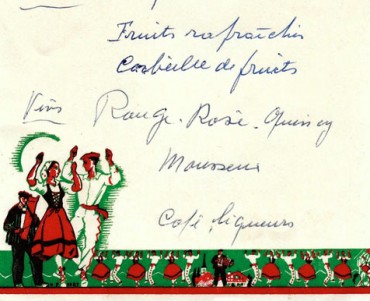 Fruits rafraîchis
Corbeille de fruits
Vins Rouge. Rosé. Quincy
Mousseux
Café, liqueurs